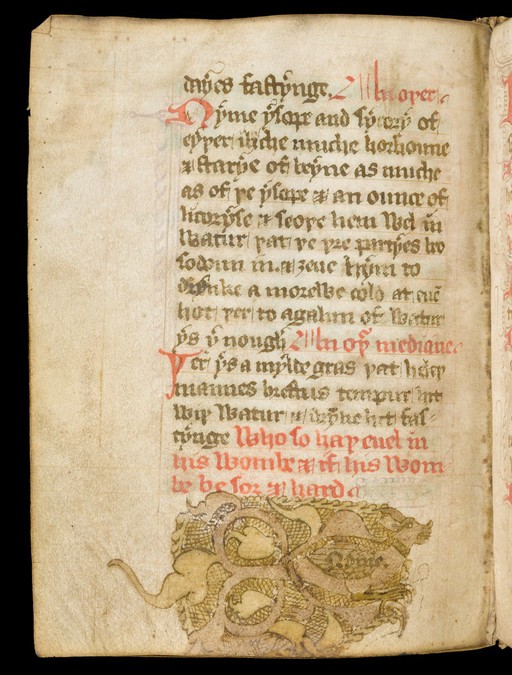 dayes fastynge. An oþer
Nyme ysope and sycory of
eyþer iliche muche horhoune
& starye of beyne as muche
as of þe ysope & an ounce of
licoryse & seoþe hem wel in
watur þat þe þre partyes be
sodoun in & zeue hym to
drynke a morewe cold at eue
hot þer to a galun of watur
ys y nough An oþer medicine
Þer ys a mylde gras þat
mannes brestus tempur hit
wiþ watur & drynke hit fas-
tynge Who so haþ euel in
his wombe & if his wom
be be sor & hard
Nyme